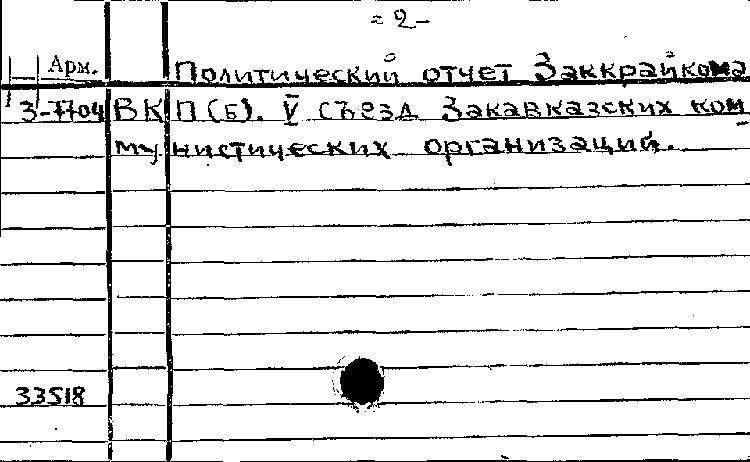 = 2 –
Арм. Политический отчет Заккрайкома
3-7704 ВКП(б). V съезд Закавказских ком
мунистических организаций.
33518